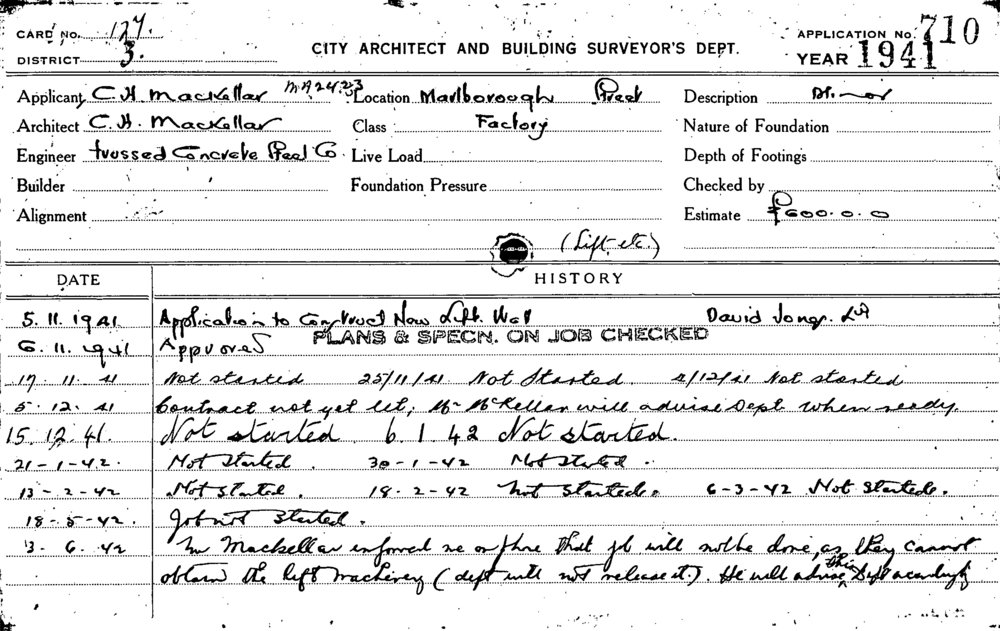 CARD No. 127.
DISTRICT 3.
CITY ARCHITECT AND BUILDING SURVEYOR'S DEPT.
APPLICATION No. 710
YEAR 1941
Applicant C. H. Mackellar MA 2423
Location Marlborough Street
Description Minor
Architect C. H. Mackellar
Class Factory
Nature of Foundation
Engineer Trussed Concrete Steel Co.
Live Load
Depth of Footings
Builder
Foundation Pressure
Checked by
Alignment
Estimate £600.0.0
(Lift etc.)
DATE HISTORY
5.11.1941 Application to Construct New Lift Well David Jones Ltd
PLANS & SPECN. ON JOB CHECKED
6.11.1941 Approved
17.11.41 Not started 25/11/41 Not Started. 2/12/41 Not started
5.12.41 Contract not yet let, Mr McKellar will advise Dept when ready.
15.12.41. Not started. 6.1.42 Not started.
21-1-42. Not Started. 30-1-42 Not Started.
13-2-42 Not Started. 18-2-42 Not Started. 6-3-42 Not Started.
18-5-42. Job not Started.
3.6.42 Mr Mackellar informed me on phone that job will not be done, as they cannot
obtain the lift machinery (dept will not release it.). He will advise this Dept accordingly